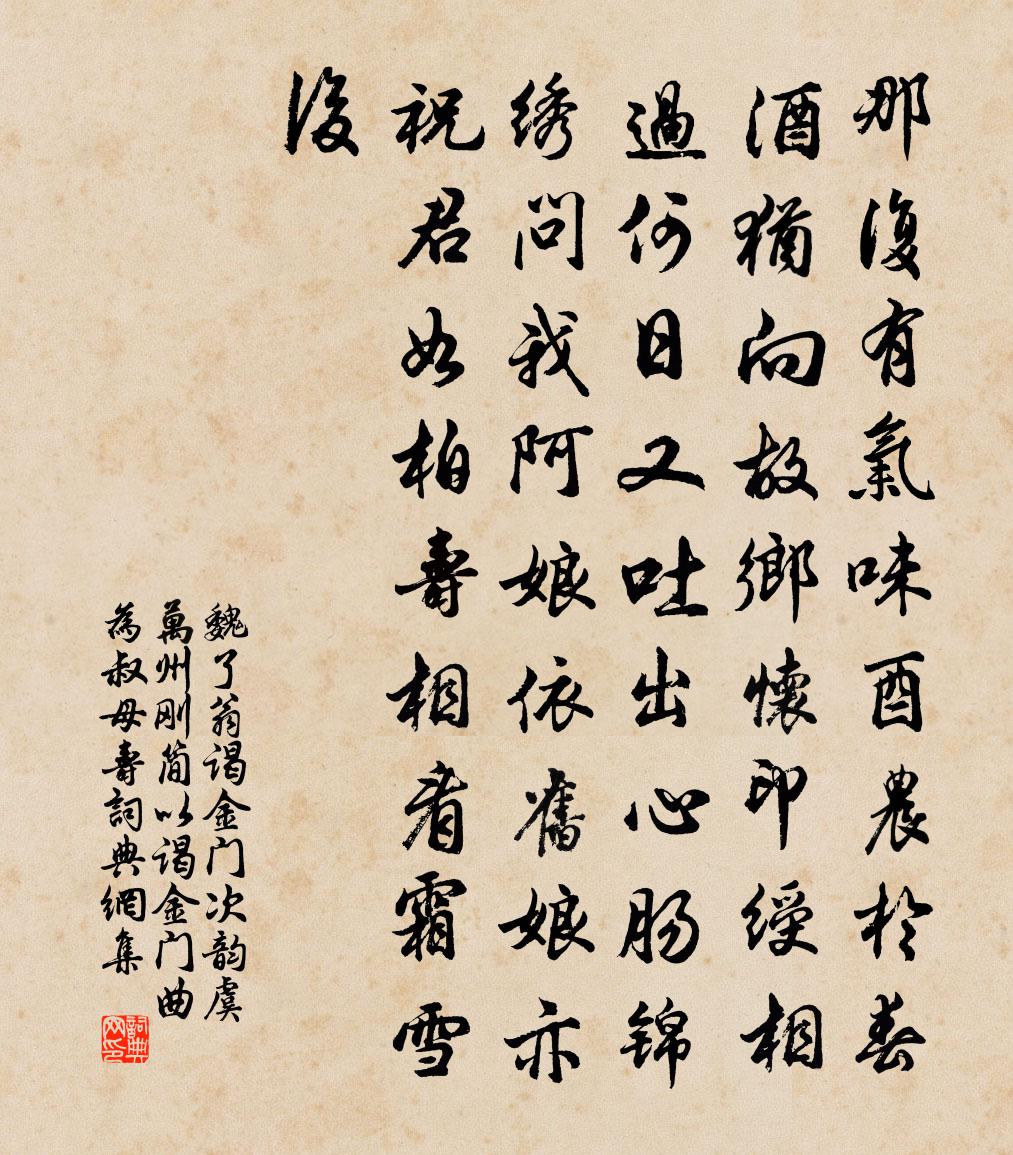 那復有氣味酉農於春
酒猶向故鄉懷印綬相
過何日又吐出心肠锦
绣問我阿娘依舊娘亦
祝君如柏壽相看霜雪
後
魏了翁谒金门次韵虞
萬州刚简以谒金门曲
為叔母壽詞典網集
詞典
网印